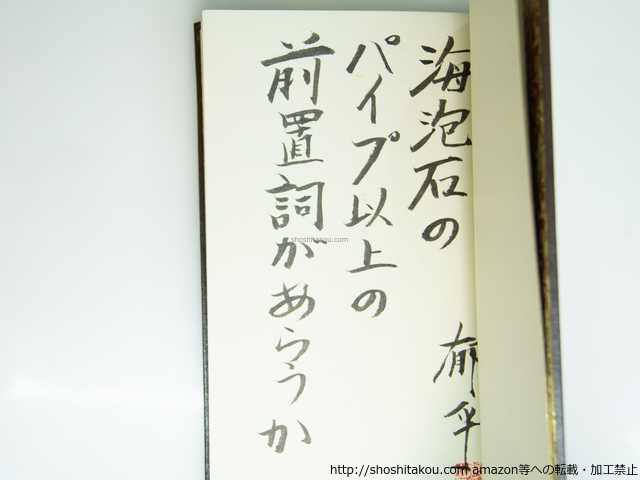 海泡石の
パイプ以上の
前置詞があらうか
郁乎
shoshitakou.com
http://shoshitakou.com amazon等への転載・加工禁止